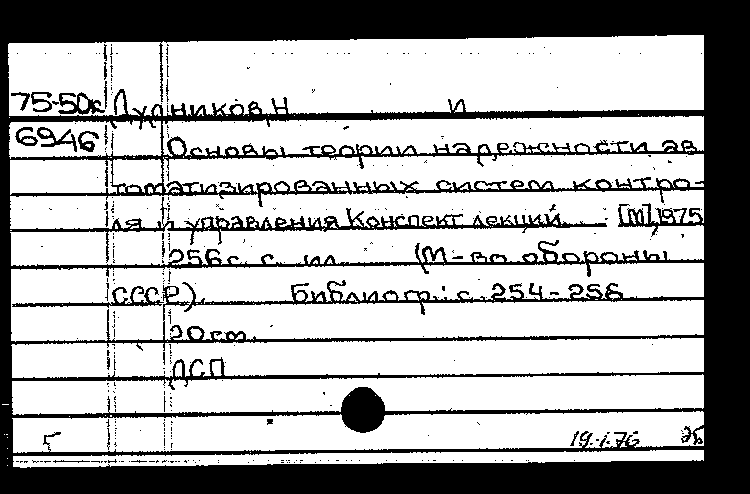 75-50к Дудников, Н И
6946 Основы теории надежности ав
томатизированных систем контро-
ля и управления Конспект лекций. [М], 1975
256 с. с. ил. (М-во обороны
СССР). Библиогр.: с. 254-256
20 см.
ДСП
19.I.76